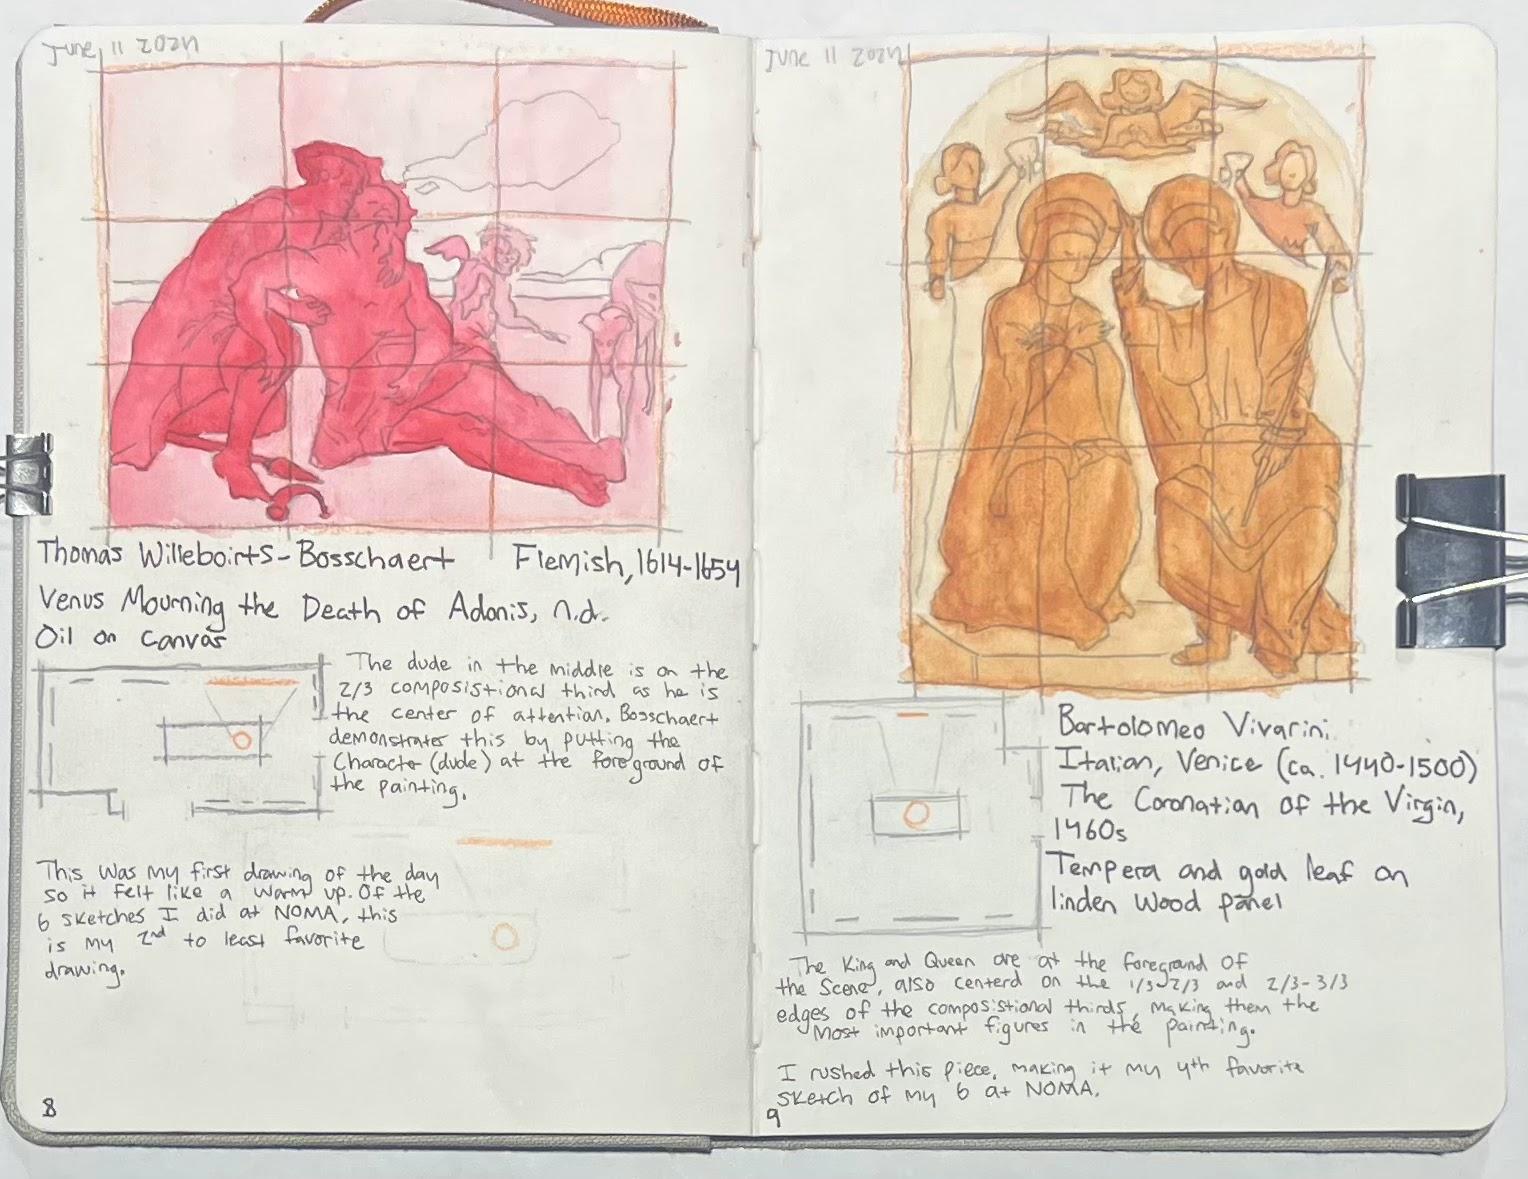 June 11 2024
Thomas Willeboirts-Bosschaert Flemish, 1614-1654
Venus Mourning the Death of Adonis, n.d.
Oil on canvas
The dude in the middle is on the
2/3 composistional third as he is
the center of attention. Bosschaert
demonstrates this by putting the
Character (dude) at the foreground of
the painting.
This was my first drawing of the day
so it felt like a warm up. Of the
6 sketches I did at NOMA, this
is my 2nd to least favorite
drawing.
8
June 11 2024
Bartolomeo Vivarini
Italian, Venice (ca. 1440-1500)
The Coronation of the Virgin,
1460s
Tempera and gold leaf on
linden wood panel
The King and Queen are at the foreground of
the scene, also centerd on the 1/3-2/3 and 2/3-3/3
edges of the composistional thirds, making them the
most important figures in the painting.
I rushed this piece, making it my 4th favorite
sketch of my 6 at NOMA.
9